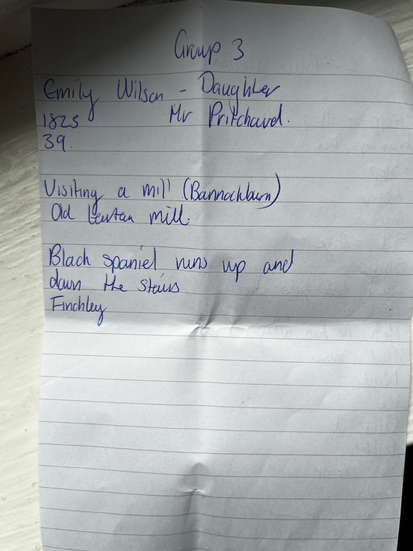 Group 3
Emily Wilson - Daughter
1825 Mr Pritchard.
39.
Visiting a mill (Bannockburn)
Old mill.
Black spaniel runs up and
down the stairs
Finchley